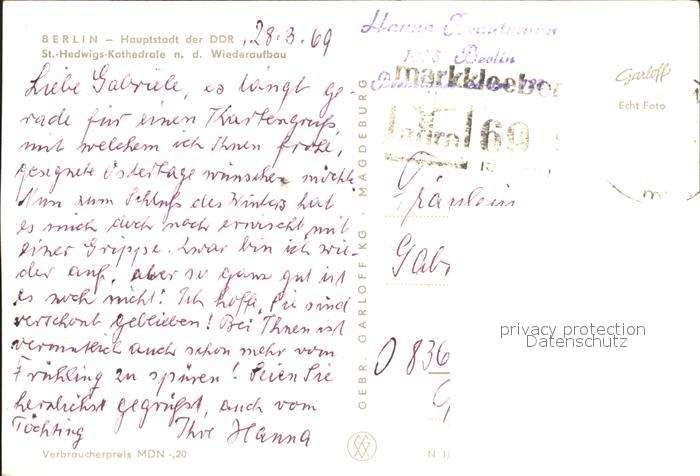 BERLIN – Hauptstadt der DDR, 28.3.69
St.-Hedwigs-Kathedrale n. d. Wiederaufbau
Liebe Gabriele, es langt ge-
rade für einen Kartengruß,
mit welchem ich Ihnen frohe,
gesegnete Ostertage wünschen möchte.
Nun zum Schluß des Winters hat
es mich doch noch erwischt mit
einer Grippe. Zwar bin ich wie-
der auf, aber so ganz gut ist
es noch nicht! Ich hoffe, Sie sind
verschont geblieben! Bei Ihnen ist
vermutlich auch schon mehr vom
Frühling zu spüren! Seien Sie
herzlichst gegrüßt, auch vom
Töchting Ihre Hanna
Verbraucherpreis MDN -,20
GEBR. GARLOFF KG · MAGDEBURG
Hanna
Berlin
markkleeberg
69
Garloff
Echt Foto
Fräulein
Gab
O 836
G
privacy protection
Datenschutz
N 1/